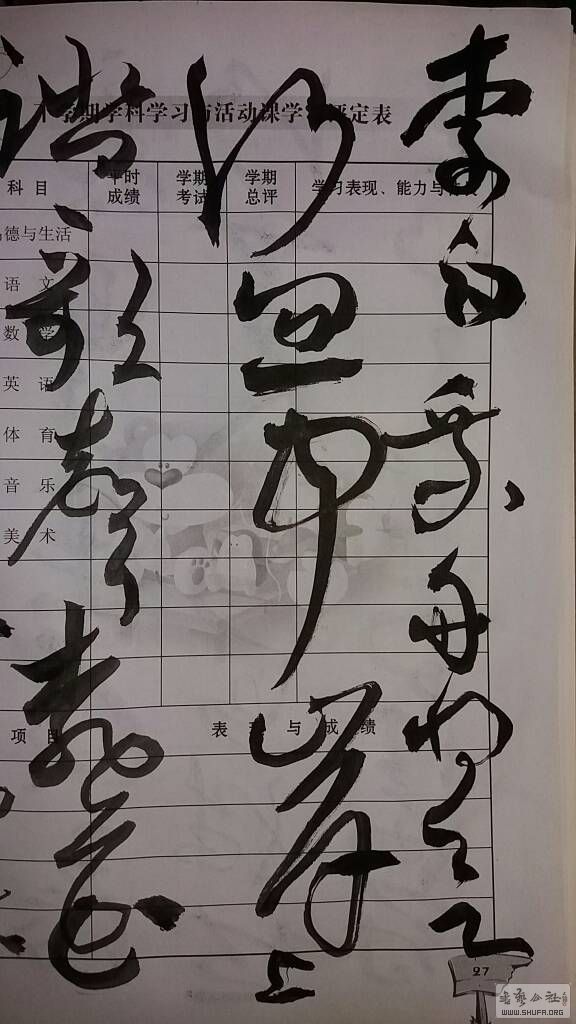 李白乘舟将欲
行忽闻岸上
踏歌声桃花
学期学科学习与活动课学 评定表
科目 平时成绩 学期考试 学期总评 学习表现、能力与
德与生活
语文
数学
英语
体育
音乐
美术
项目 表现与成绩
27
书法公社
WWW.SHUFA.ORG